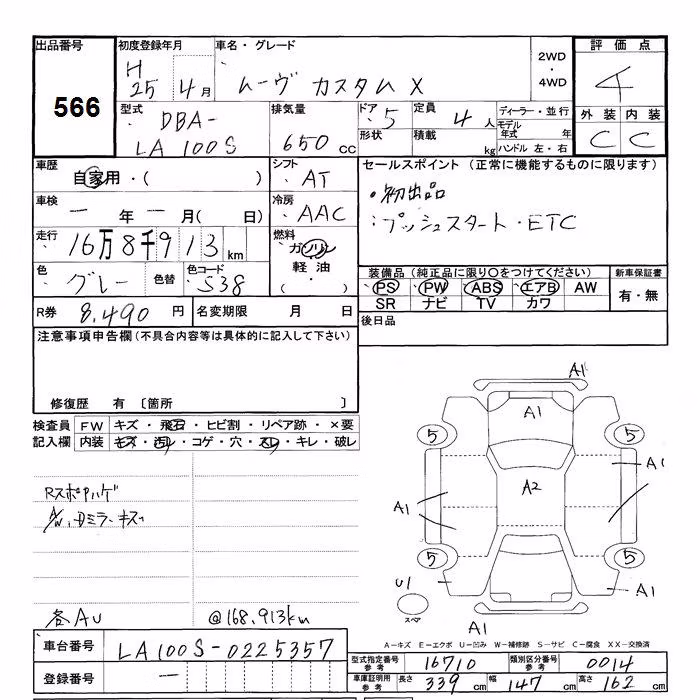 出品番号 初度登録年月 車名・グレード 2WD ・ 4WD 評価点
566 H 25 4月 ムーヴ カスタム X 4
型式 排気量 ドア 5 定員 4人 ディーラー・並行 外装 内装
DBA- LA100S 650cc 形状 積載 kg モデル年式 年 C C
ハンドル 左・右
車歴 シフト セールスポイント (正常に機能するものに限ります)
自家用・( ) AT ・初出品
車検 冷房 ・プッシュスタート・ETC
一年一月( 日) AAC
走行 16万8千913km 燃料 ガソリン 軽油 ( ・ )
色 グレー 色替 色コード S38 装備品 (純正品に限り○をつけてください) 新車保証書
PS PW ABS エアB AW 有・無
SR ナビ TV カワ
R券 8,490円 名変期限 月 日 後日品
注意事項申告欄 (不具合内容等は具体的に記入して下さい)
修復歴 有 〔箇所 〕
検査員 FW キズ・飛石・ヒビ割・リペア跡・×要
記入欄 内装 キズ・汚レ・コゲ・穴・スレ・キレ・破レ
RスポPハゲ
A/W、Dミラーキズ
各AU @168,913km
A1
A1
5 5
A1
A2
A1
5 5
U1 A1
スペア
A1
A－キズ E－エクボ U－凹み W－補修跡 S－サビ C－腐食 XX－交換済
車台番号 LA100S-0225357
登録番号 一
型式指定番号 参考 16710 類別区分番号 参考 0014
車庫証明用 参考 長さ 339cm 幅 147cm 高さ 162cm